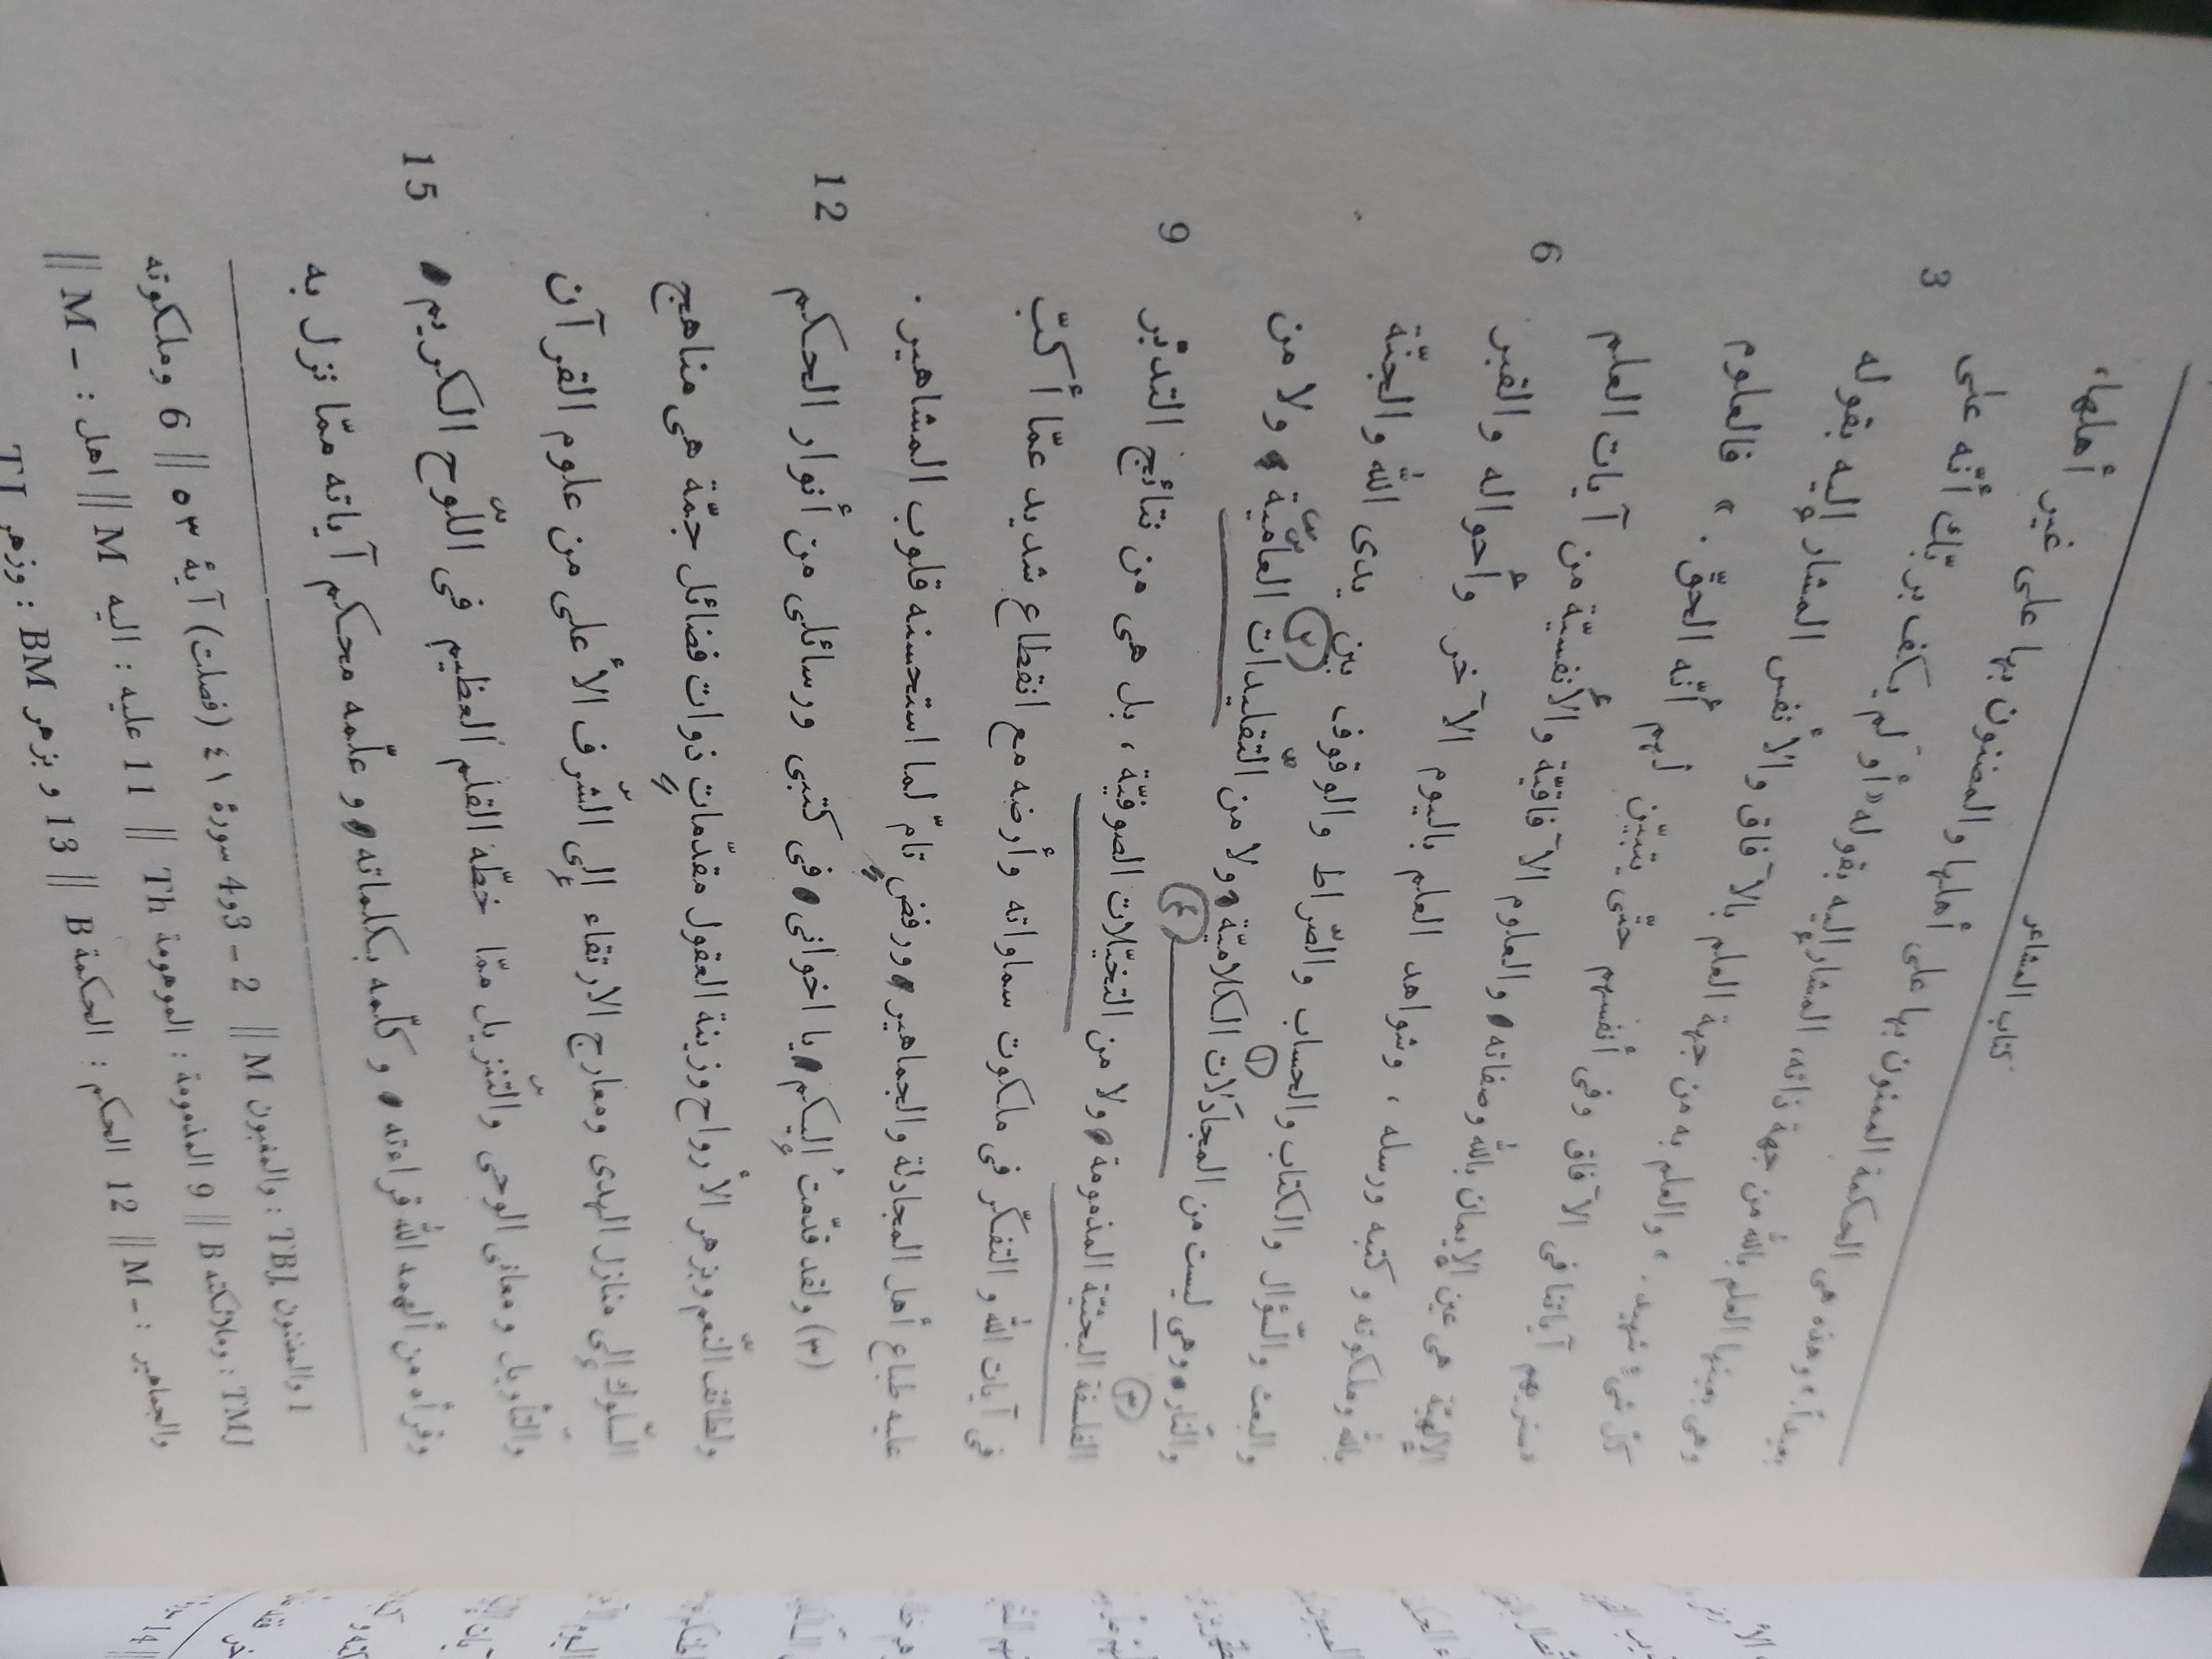 كتاب المشاعر
بعيداً، وهذه هى الحكمة الممنون بها على أهلها والمضنون بها على غير أهلها،
وهى بعينها العلم بالله من جهة ذاته، المشار إليه بقوله «أو لم يكف بربّك أنّه على
كلّ شىء شهيد. » والعلم به من جهة العلم بالآفاق والأنفس المشار إليه بقوله
«سنريهم آياتنا فى الآفاق وفى أنفسهم حتّى يتبيّن لهم أنّه الحقّ. » فالعلوم
الإلهيّة هى عين الإيمان بالله وصفاته، والعلوم الآفاقيّة والأنفسيّة من آيات العلم
بالله وملكوته وكتبه ورسله، وشواهد العلم باليوم الآخر وأحواله والقبر
والبعث والسّؤال والكتاب والحساب والصّراط والوقوف بين يدى الله والجنّة
والنّار، وهى ليست من المجادلات الكلاميّة، ولا من التقليدات العامّيّة، ولا من
الفلسفة البحثيّة المذمومة، ولا من التخيّلات الصوفيّة، بل هى من نتائج التدبّر
فى آيات الله والتفكّر فى ملكوت سماواته وأرضه مع انقطاع شديد عمّا أكبّ
عليه طباع أهل المجادلة والجماهير، ورفضٍ تامّ لما استحسنه قلوب المشاهير.
(٣) ولقد قدّمتُ إليكم، يا اخوانى، فى كتبى ورسائلى من أنوار الحكم
ولطائف النّعم وبزهر الأرواح وزينة العقول مقدّمات ذوات فضائل جمّة هى مناهج
السّلوك إلى منازل الهدى ومعارج الارتقاء إلى الشّرف الأعلى من علوم القرآن
والتأويل ومعانى الوحى والتّنزيل ممّا خطّه القلم العظيم فى اللّوح الكريم،
وقرأه من ألهمه الله قراءته، وكلّمه بكلماته، وعلّمه محكم آياته ممّا نزل به
3
6
9
12
15
1 والمضنون TBJ : والمغبون M || 2 – 3و4 سورة ٤١ (فصلت) آية ٥٣ || 6 وملكوته
TMJ : وملائكته B || 9 المذمومة : الموهومة Th || 11 عليه : اليه M || اهل : – M ||
والجماهير : – M || 12 الحكم : الحكمة B || 13 وبزهر BM : وزهر TJ